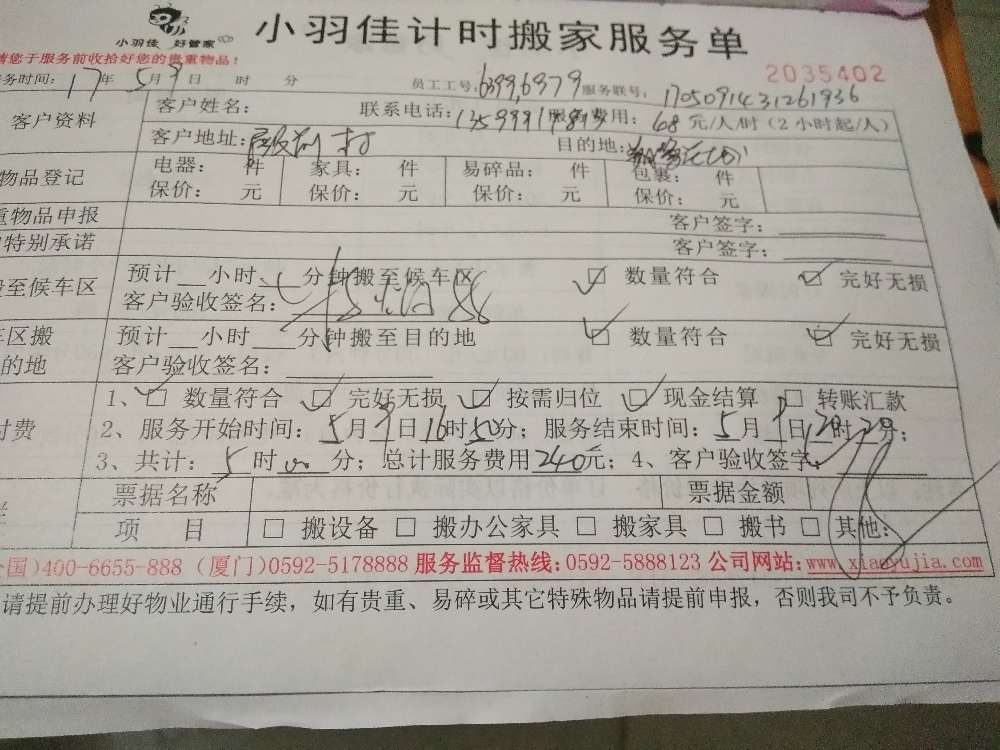 小羽佳 好管家
小羽佳计时搬家服务单
请您于服务前收拾好您的贵重物品！
2035402
务时间：17年5月9日 时 分 员工工号：6399,6979 服务联号：1705091431261936
客户资料
客户姓名： 联系电话： 服务费用：68元/人/时（2小时起/人）
客户地址： 村 目的地：
物品登记
电器： 件 家具： 件 易碎品： 件 包裹： 件
保价： 元 保价： 元 保价： 元 保价： 元
重物品申报 客户签字：
特别承诺 客户签字：
搬至候车区
预计__小时__分钟搬至候车区 ☑ 数量符合 ☑ 完好无损
客户验收签名：
车区搬
的地
预计__小时__分钟搬至目的地 ☑ 数量符合 ☑ 完好无损
客户验收签名：
付费
1、☑ 数量符合 ☑ 完好无损 ☑ 按需归位 ☑ 现金结算 □ 转账汇款
2、服务开始时间：5月9日16时50分；服务结束时间：5月9日 时 分；
3、共计：5时00分；总计服务费用240元；4、客户验收签字：
票据名称 票据金额
项 目 □ 搬设备 □ 搬办公家具 □ 搬家具 □ 搬书 □ 其他：
国)400-6655-888 (厦门)0592-5178888 服务监督热线：0592-5888123 公司网站：www.xiaoyujia.com
请提前办理好物业通行手续，如有贵重、易碎或其它特殊物品请提前申报，否则我司不予负责。